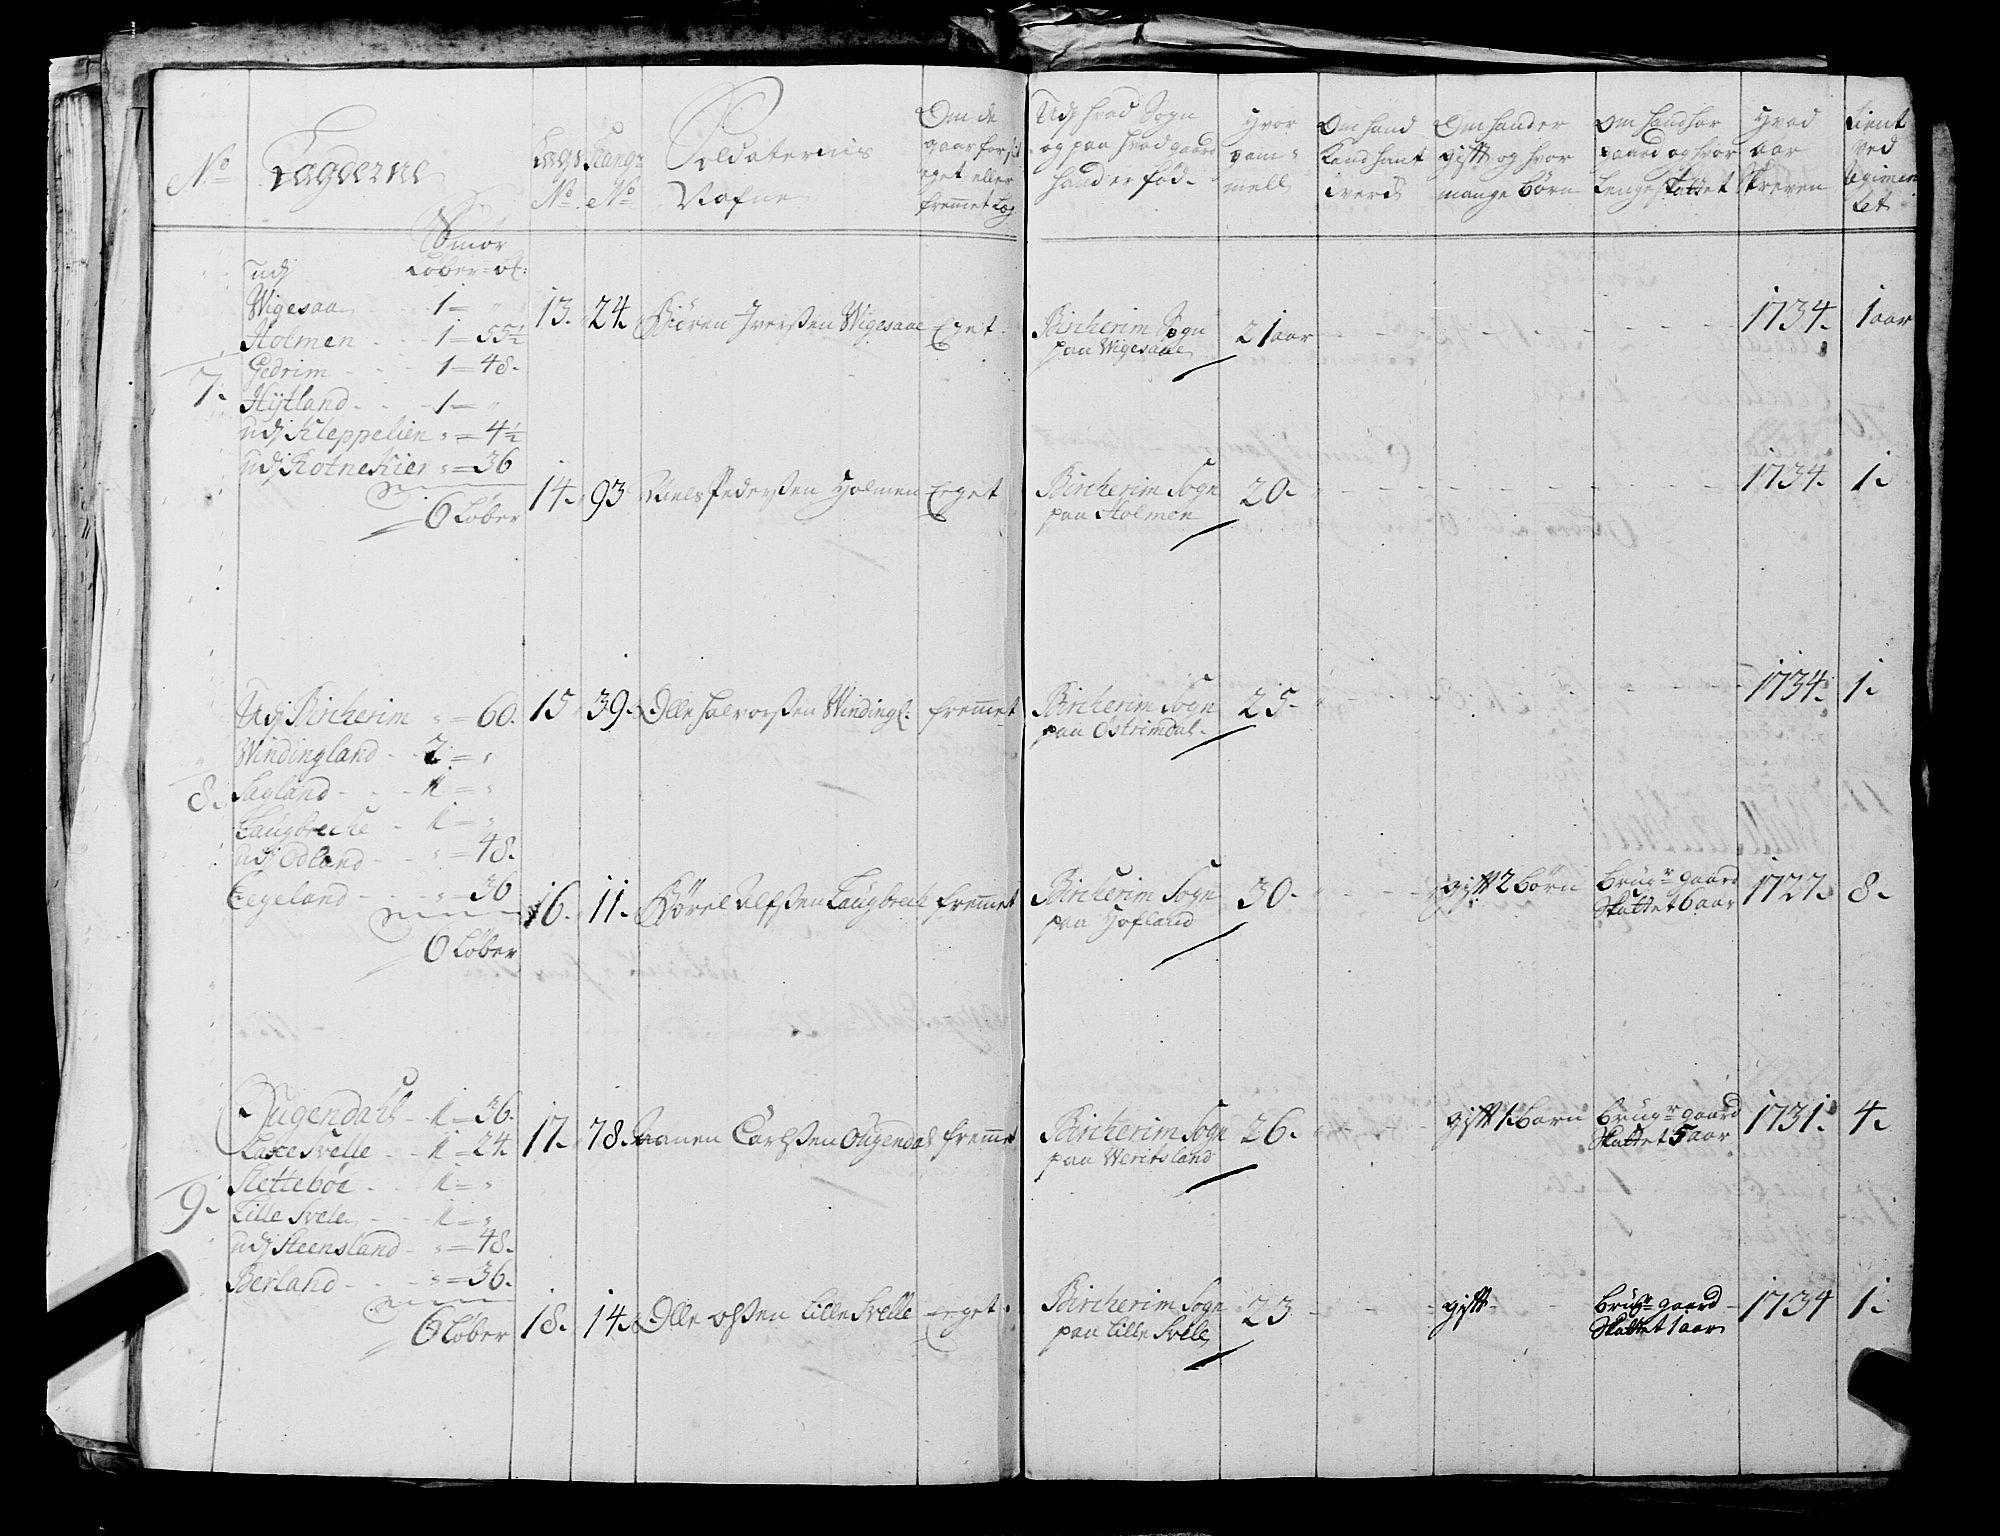 No
Lagderne
Lægs No
Rang No
Soldaternis Nafne
Om de gaar for sit eget eller fremmet Læg
Udj hvad Sogn og paa hvad gaard hand er fød
Hvor gammell
Om hand kand hantverck
Om hand er gift og hvor mange børn
Om hand har gaard og hvor lenge skattet
Hvad aar skreven
Tient ved Regimentet
Smør
udj Løber = #:
Wigesaa - - 1 = "
Holmen - - 1 = 55½
Gedrim - - 1 = 48.
7.
Hytland - - 1 = "
udj Kleppelien " = 4½
udj Rotnekier " = 36
6 Løber
13. 24. Biören Iverssen Wigesaae Eget. Bircherim Sogn paa Wigesaae 21 aar 1734. 1 aar
14. 93 Niels Pederssen Holmen Eeget Bircherim Sogn paa Holmen 20. 1734. 1.
Udj Bircherim " = 60.
Windingland - - 2 = "
8.
Lagland - - 1 = "
Laugbreche - 1 = "
udj Odland - - " = 48.
Eegeland - - " = 36
6 Løber
15 39. Olle Halvorssen Windingl. fremmet Bircherim Sogn paa Östrimdal. 25. 1734. 1.
16. 11. Börel Alfssen Laugbrech fremmet Bircherim Sogn paa Hofland 30. gift 2 børn Brugr gaard Skattet 6 aar 1727. 8.
Ougendahl - 1 = 36.
Laxesvelle - - 1 = 24.
Slettebøe - - 1 = "
9.
Lille Svele - - 1 = "
udj Steensland - " = 48.
Berland - - " = 36.
6 Løber
17. 78. Aanen Carlssen Ougendal fremmet Bircherim Sogn paa Weritsland 26. gift 1. Barn Brugr gaard Skattet 5 aar 1731. 4.
18. 14. Olle Olssen Lille Svelle Eeget. Bircherim Sogn paa Lille Svele 23 gift Brugr gaard Skattet 1 aar 1734 1.